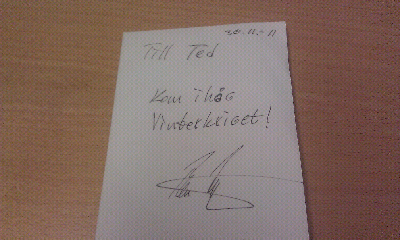 Till Ted
Kom ihåg
Vinterkriget!